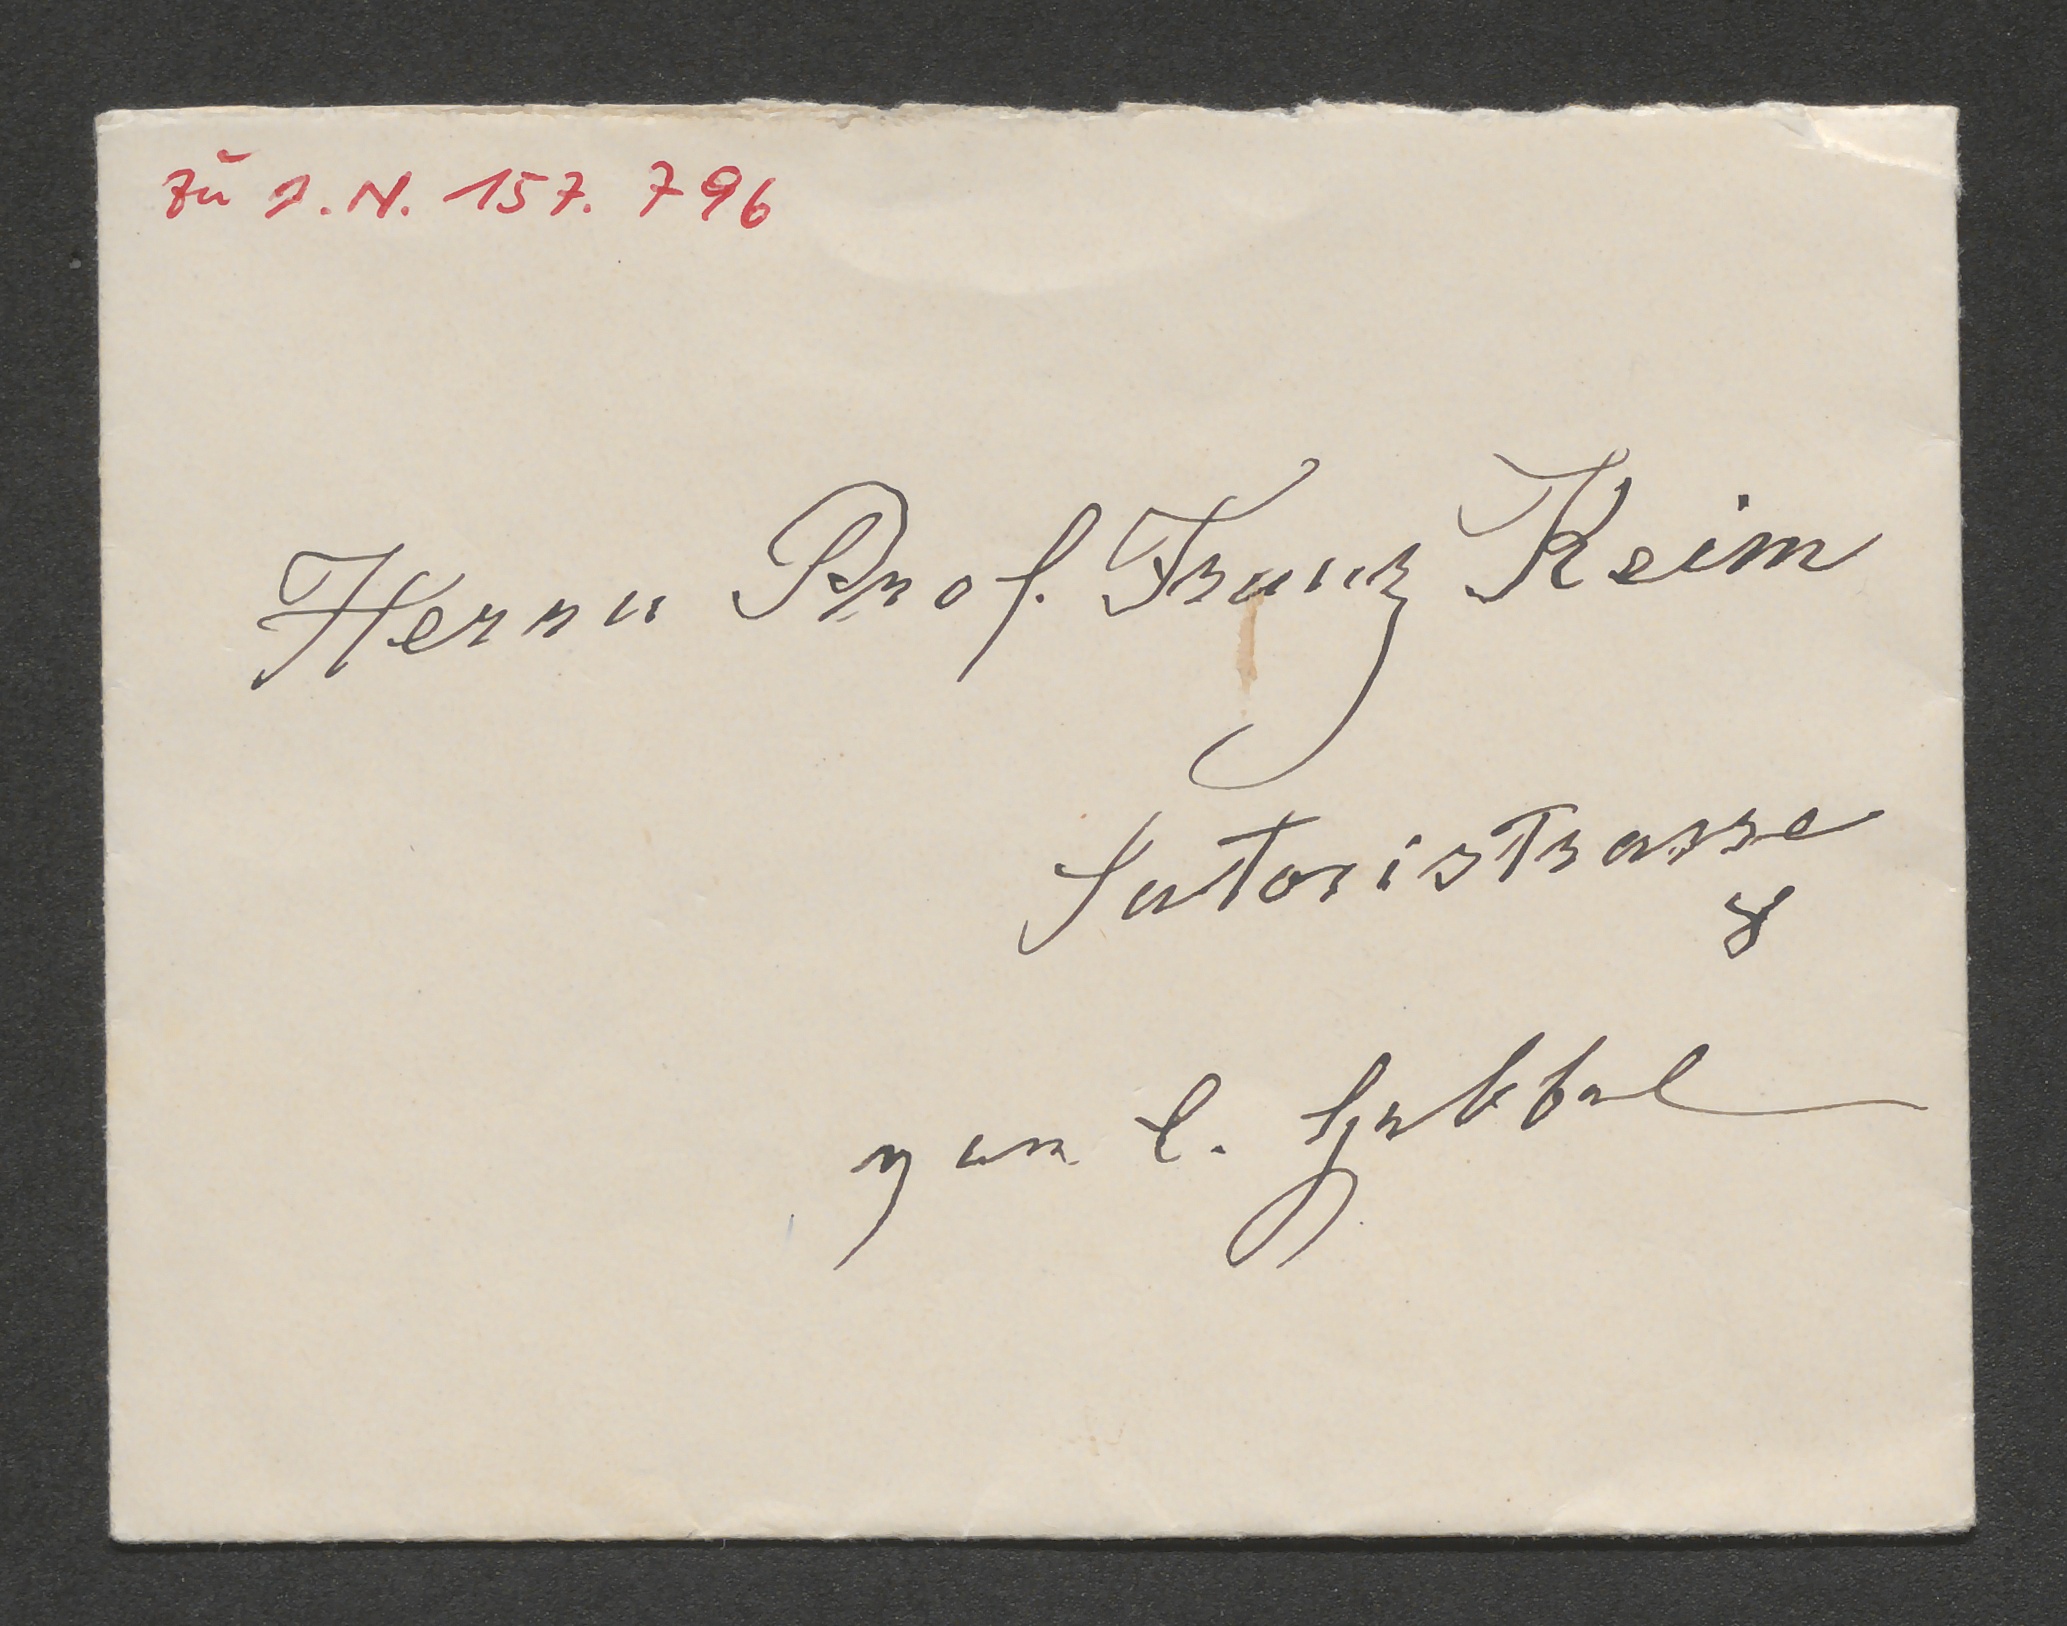 zu I.N. 157.796
Herrn Prof. Franz Keim
Sutoristrasse
8
von C. Hebbel